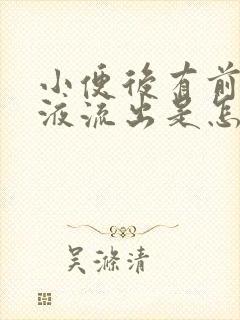 小便後有前
液流出是怎
吴滌清